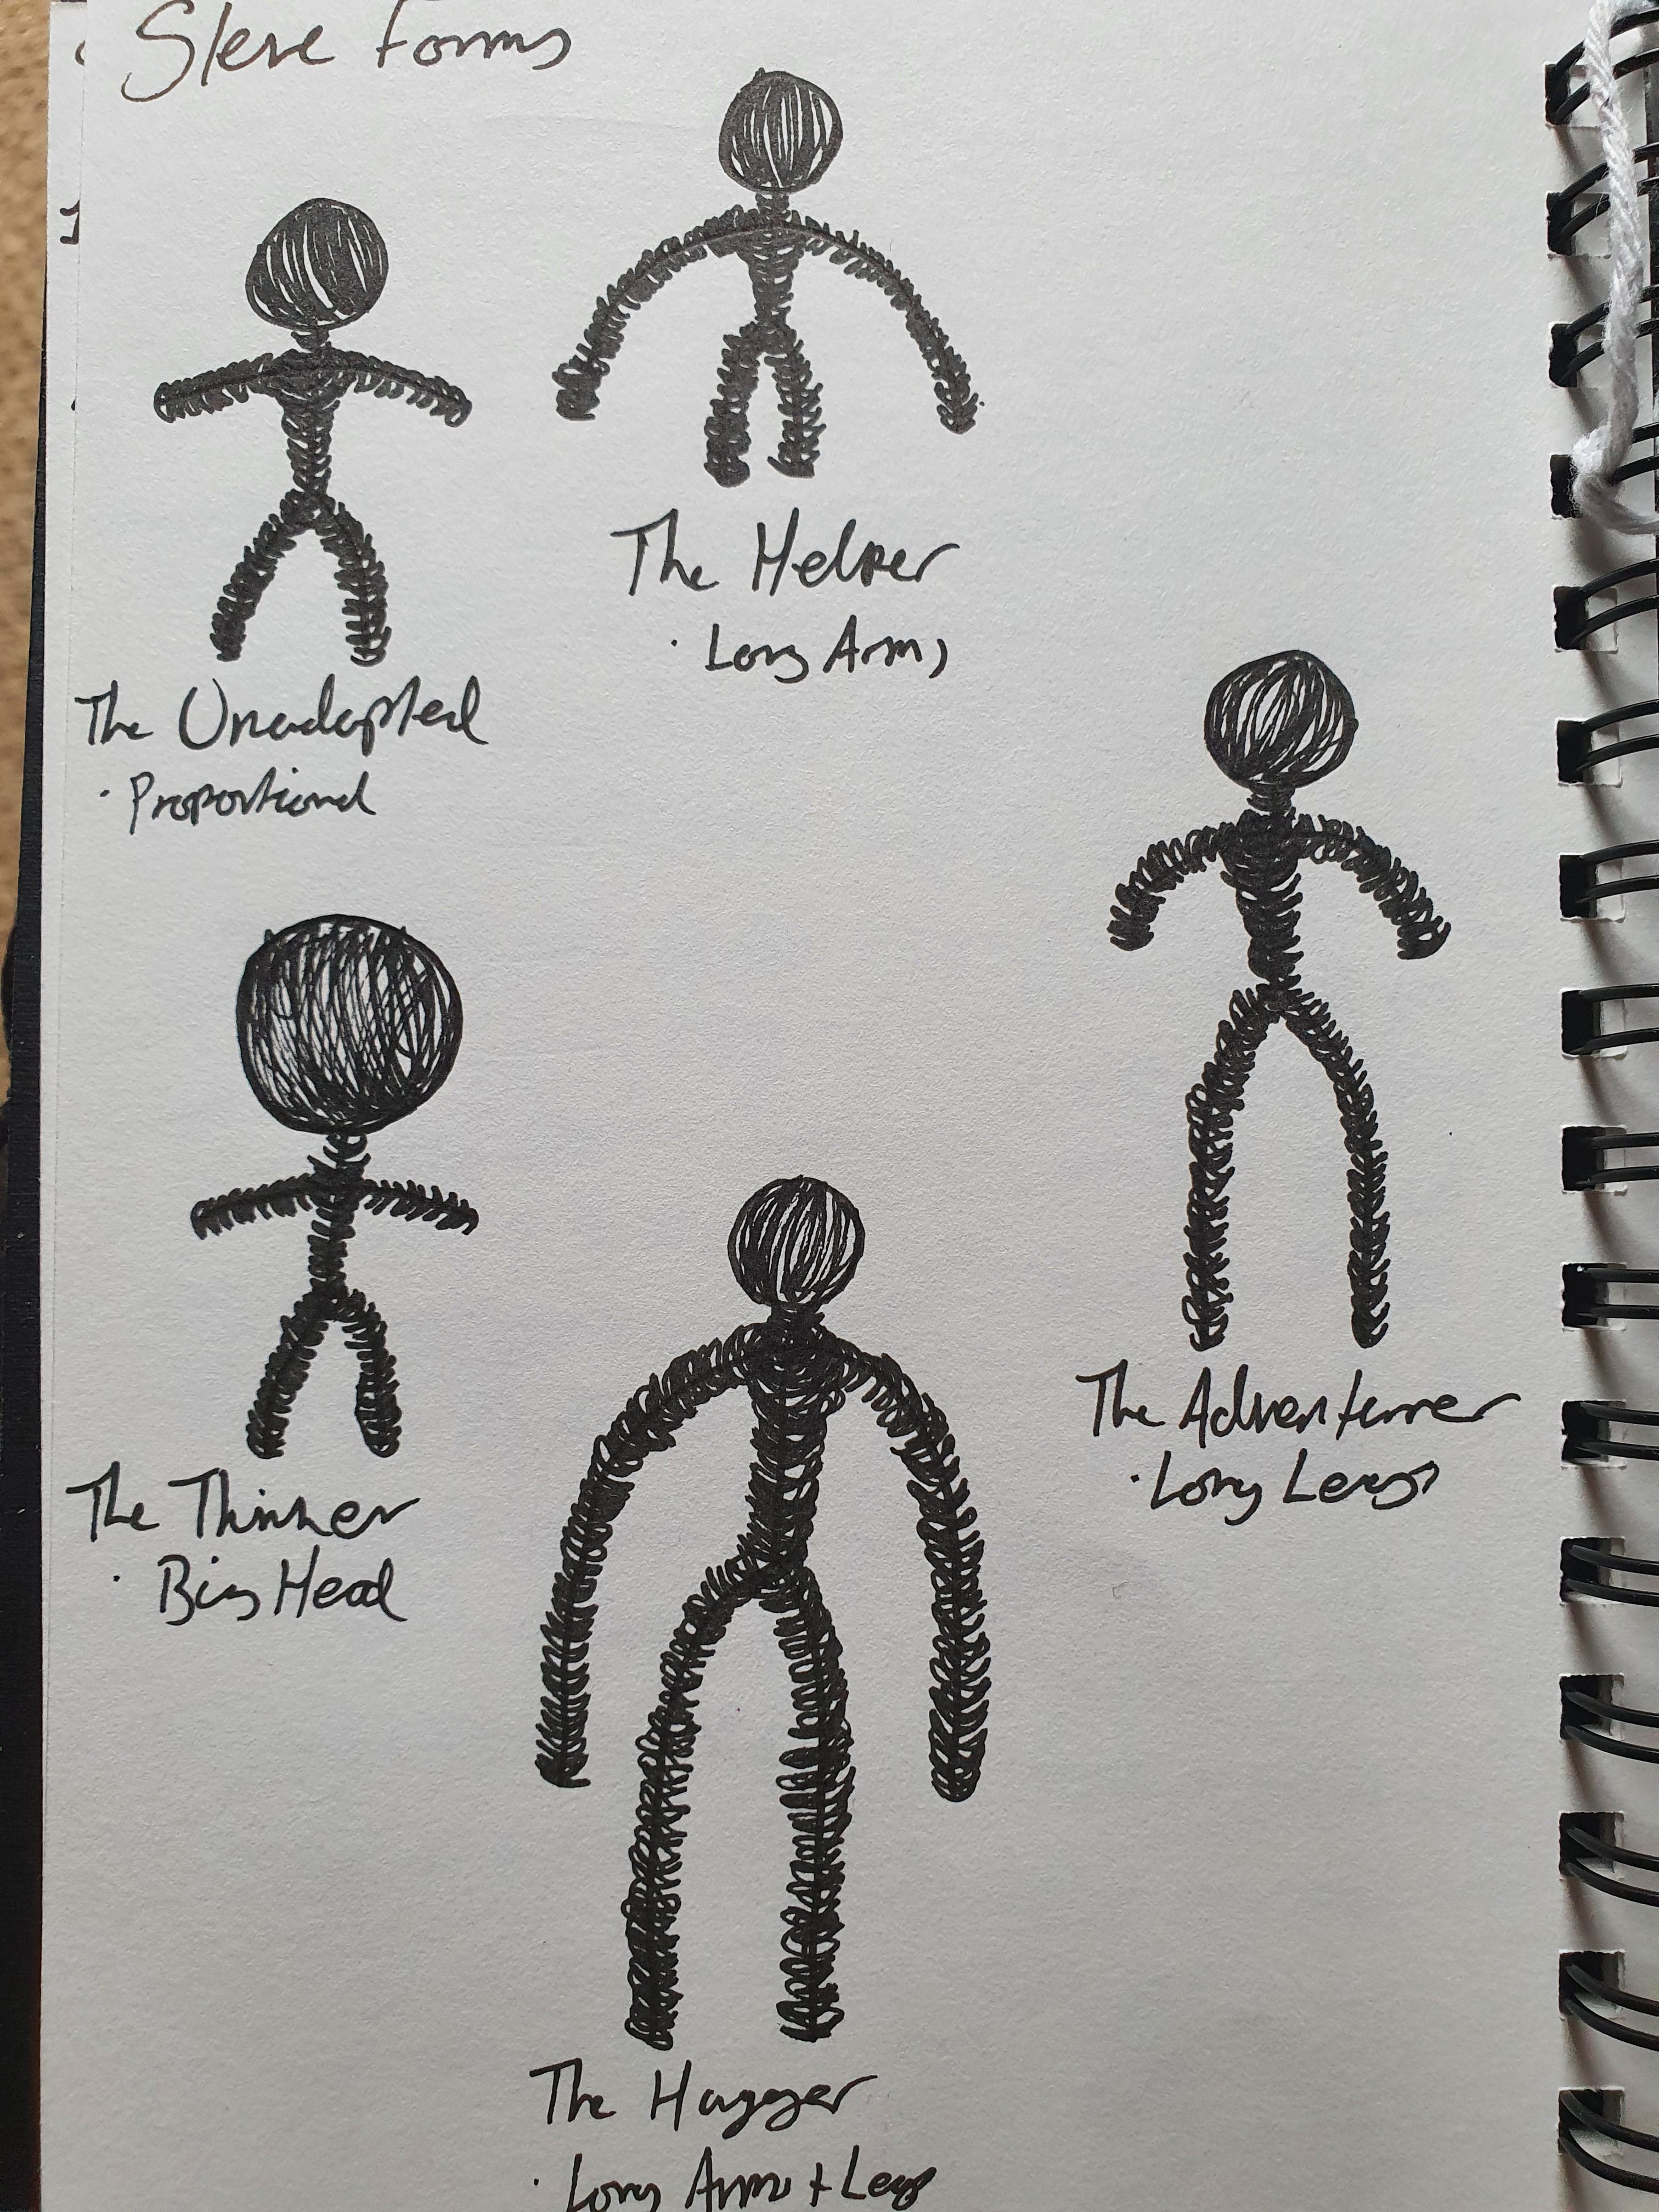 Steve Forms
The Helper
· Long Arms
The Unadapted
· Proportional
The Adventurer
· Long Legs
The Thinker
· Big Head
The Hugger
· Long Arms + Legs